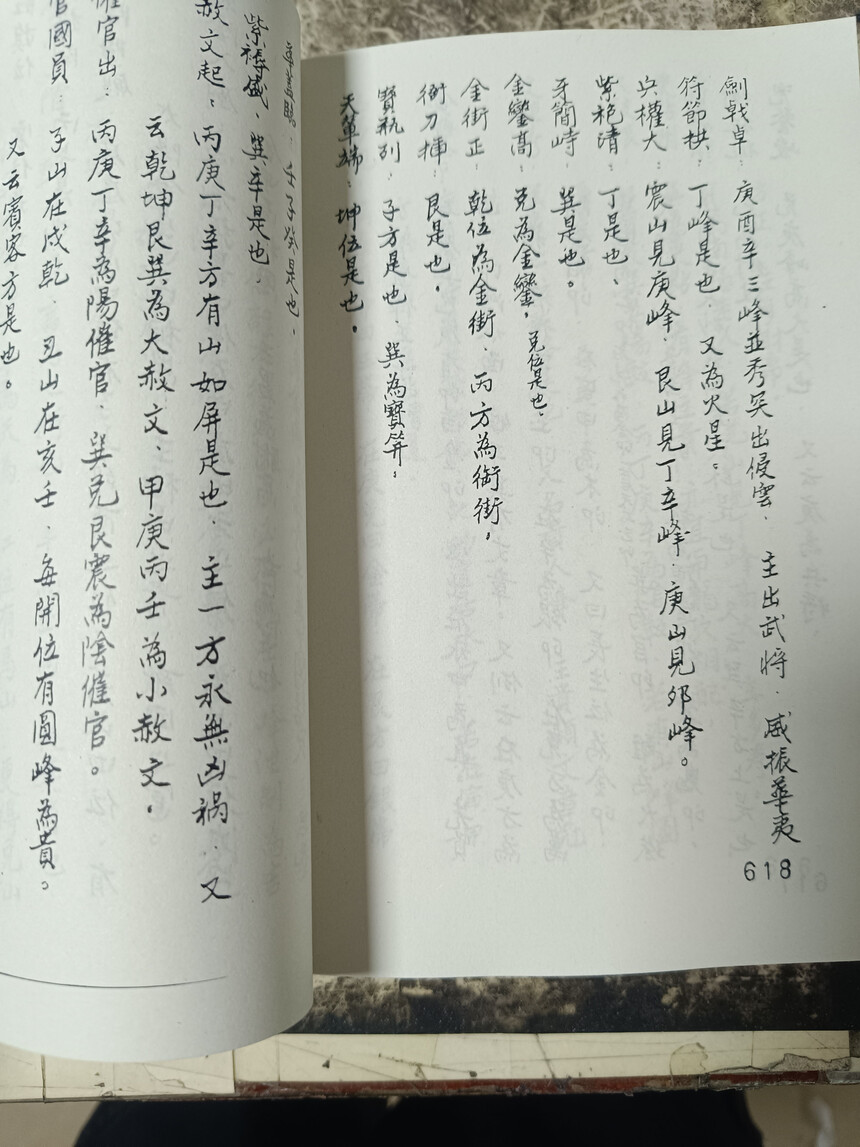 劍戟卓：庚酉辛三峰並秀突出侵雲．主出武將．威振華夷
符節拱：丁峰是也．又為火星：
兵權大：震山見庚峰．艮山見丁辛峰．庚山見卯峰。
紫袍清：丁是也、
牙簡峙．巽是也。
金鑾高：兌為金鑾，兌位是也．
金街正．乾位為金街．丙方為衙街，
衙刀揮：艮是也，
寶瓶列：子方是也．巽為寶笄：
天輦端：坤位是也。
618
華蓋聰：壬子癸是也、
紫褥盛、巽辛是也．
赦文起：丙庚丁辛方有山如屏是也．主一方永無凶禍．又
云乾坤艮巽為大赦文、甲庚丙壬為小赦文，
催官出：丙庚丁辛為陽催官．巽兌艮震為陰催官。
官國員：子山在戌乾．丑山在亥壬．每開位有圓峰為貴。
又云賓客方是也。